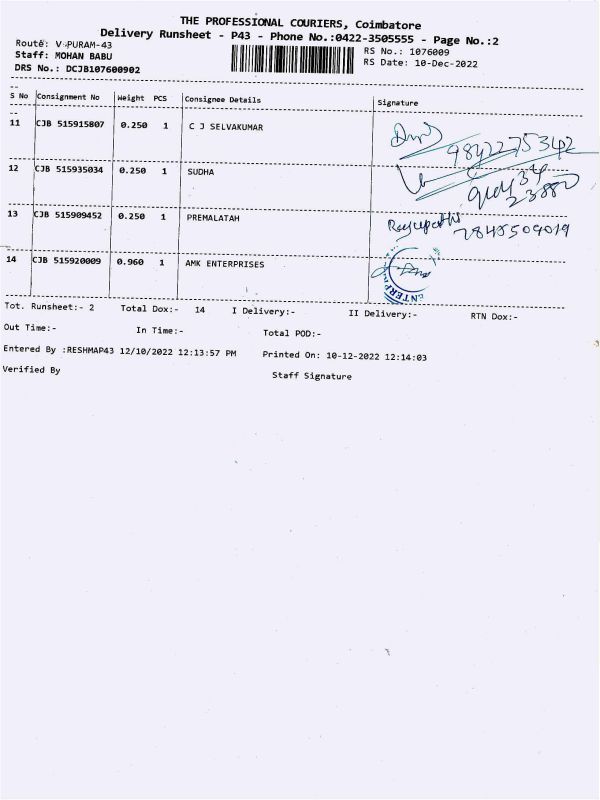 THE PROFESSIONAL COURIERS, Coimbatore
Delivery Runsheet - P43 - Phone No.:0422-3505555 - Page No.:2
Route: V.PURAM-43
RS No.: 1076009
Staff: MOHAN BABU
RS Date: 10-Dec-2022
DRS No.: DCJB107600902
S No Consignment No Weight PCS Consignee Details Signature
11 CJB 515915807 0.250 1 C J SELVAKUMAR
9842275342
12 CJB 515935034 0.250 1 SUDHA
23880
13 CJB 515909452 0.250 1 PREMALATAH
14 CJB 515920009 0.960 1 AMK ENTERPRISES
Tot. Runsheet:- 2 Total Dox:- 14 I Delivery:- II Delivery:- RTN Dox:-
Out Time:- In Time:- Total POD:-
Entered By :RESHMAP43 12/10/2022 12:13:57 PM Printed On: 10-12-2022 12:14:03
Verified By Staff Signature